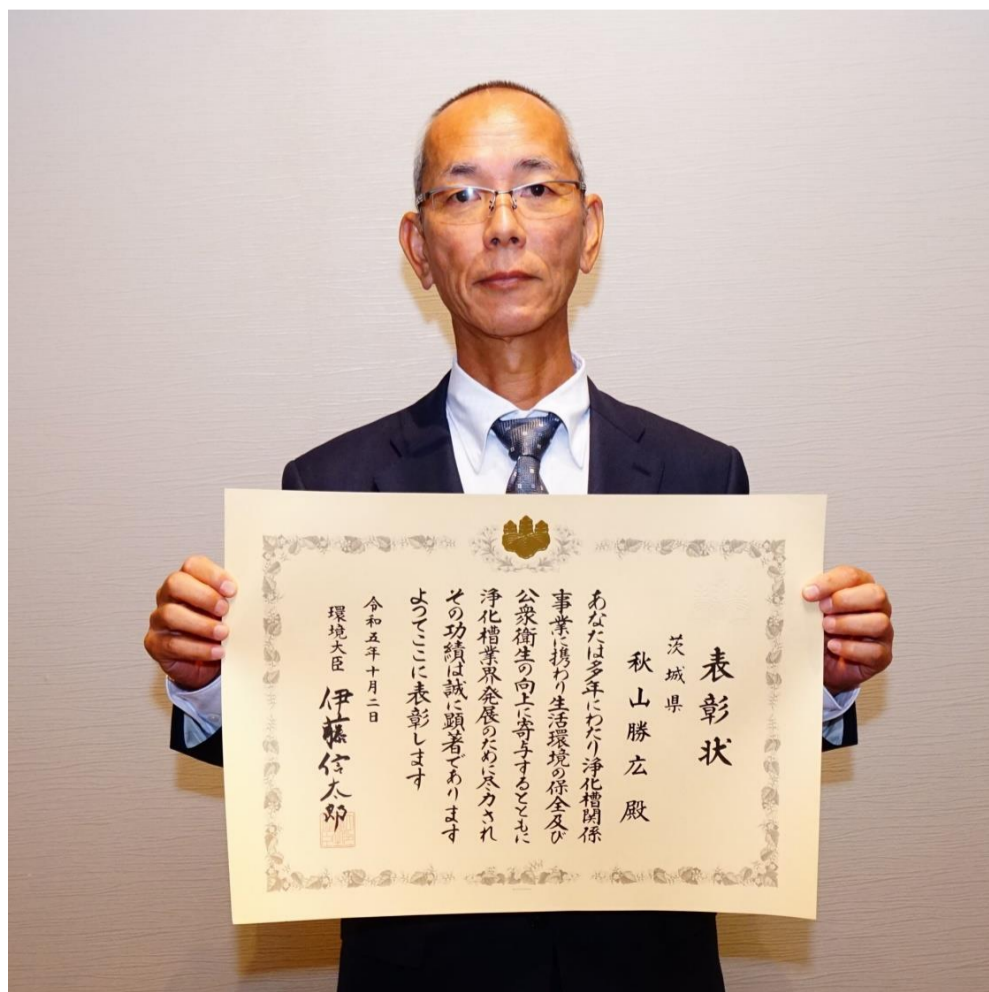 表彰状
茨城県
秋山勝広殿
あなたは多年にわたり浄化槽関係
事業に携わり生活環境の保全及び
公衆衛生の向上に寄与するとともに
浄化槽業界発展のために尽力され
その功績は誠に顕著であります
よってここに表彰します
令和五年十月二日
環境大臣 伊藤信太郎